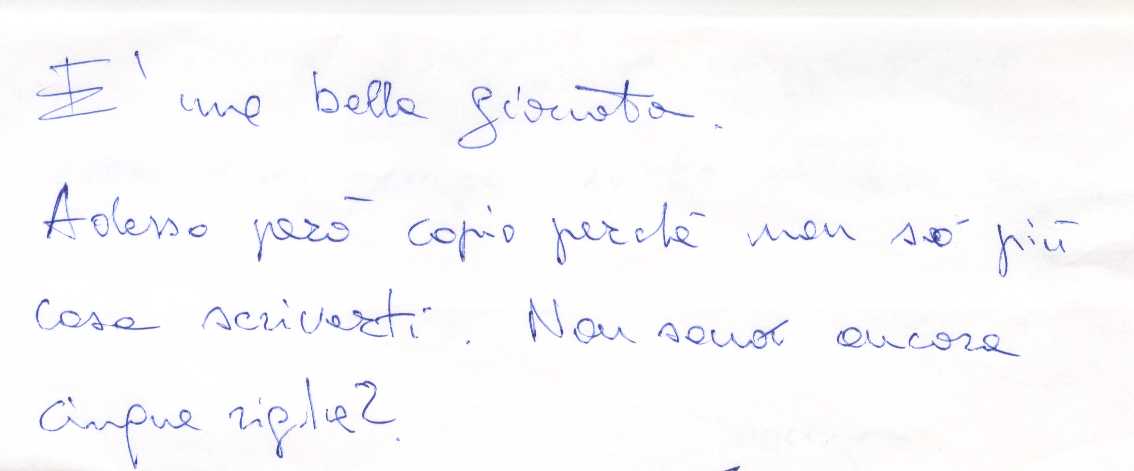 E' una bella giornata.
Adesso però copio perchè non sò più
cosa scriverti. Non sono ancora
cinque righe?